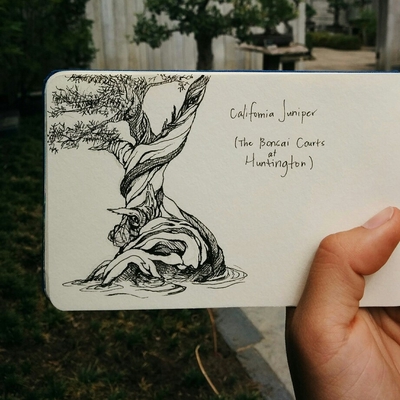 California Juniper
(The Boncai Courts
at
Huntington)